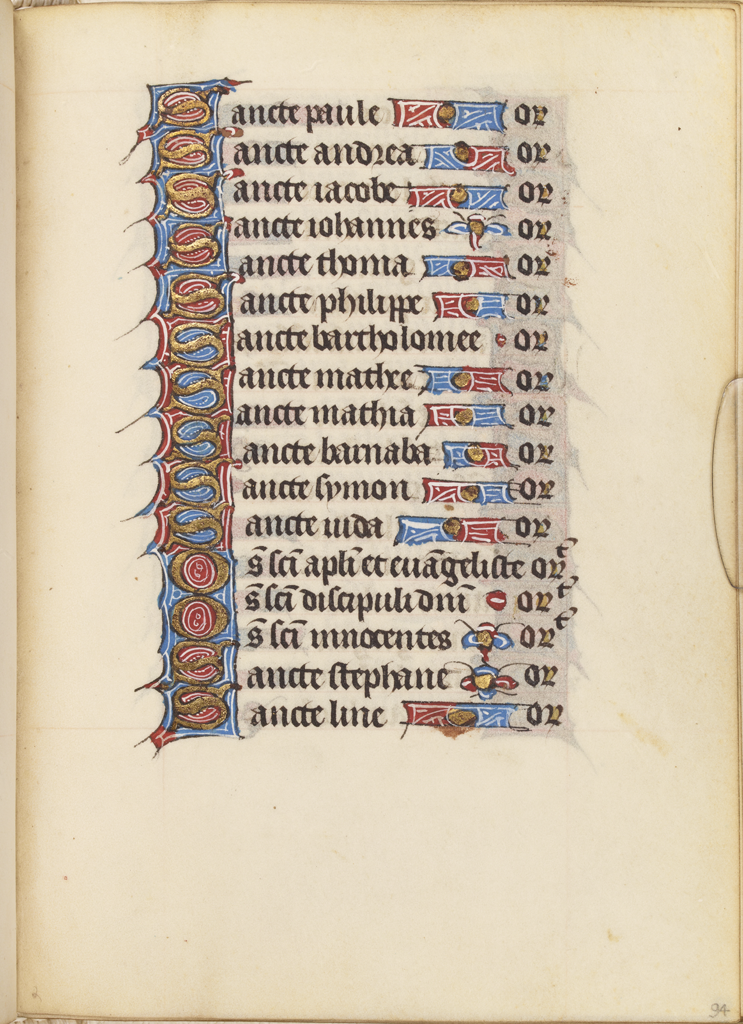 Sancte paule or
Sancte andrea or
Sancte iacobe or
Sancte iohannes or
Sancte thoma or
Sancte philippe or
Sancte bartholomee or
Sancte mathee or
Sancte mathia or
Sancte barnaba or
Sancte symon or
Sancte iuda or
Om̄s sc̄i apl̄i et euāgeliste orᵗ
Om̄s sc̄i discipuli dn̄i orᵗ
Om̄s sc̄i innocentes orᵗ
Sancte stephane or
Sancte line or
94